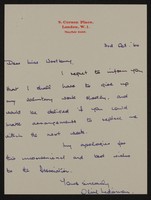 London, W.1.
2nd Oct.
Dear Miss
I regret to inform you
that I shall have to give up
my voluntary work shortly, and
would be obliged if you would
make arrangements to replace me
within the next week.
My apologies for
this inconvenience and best wishes
to the Association.
Yours Sincerely